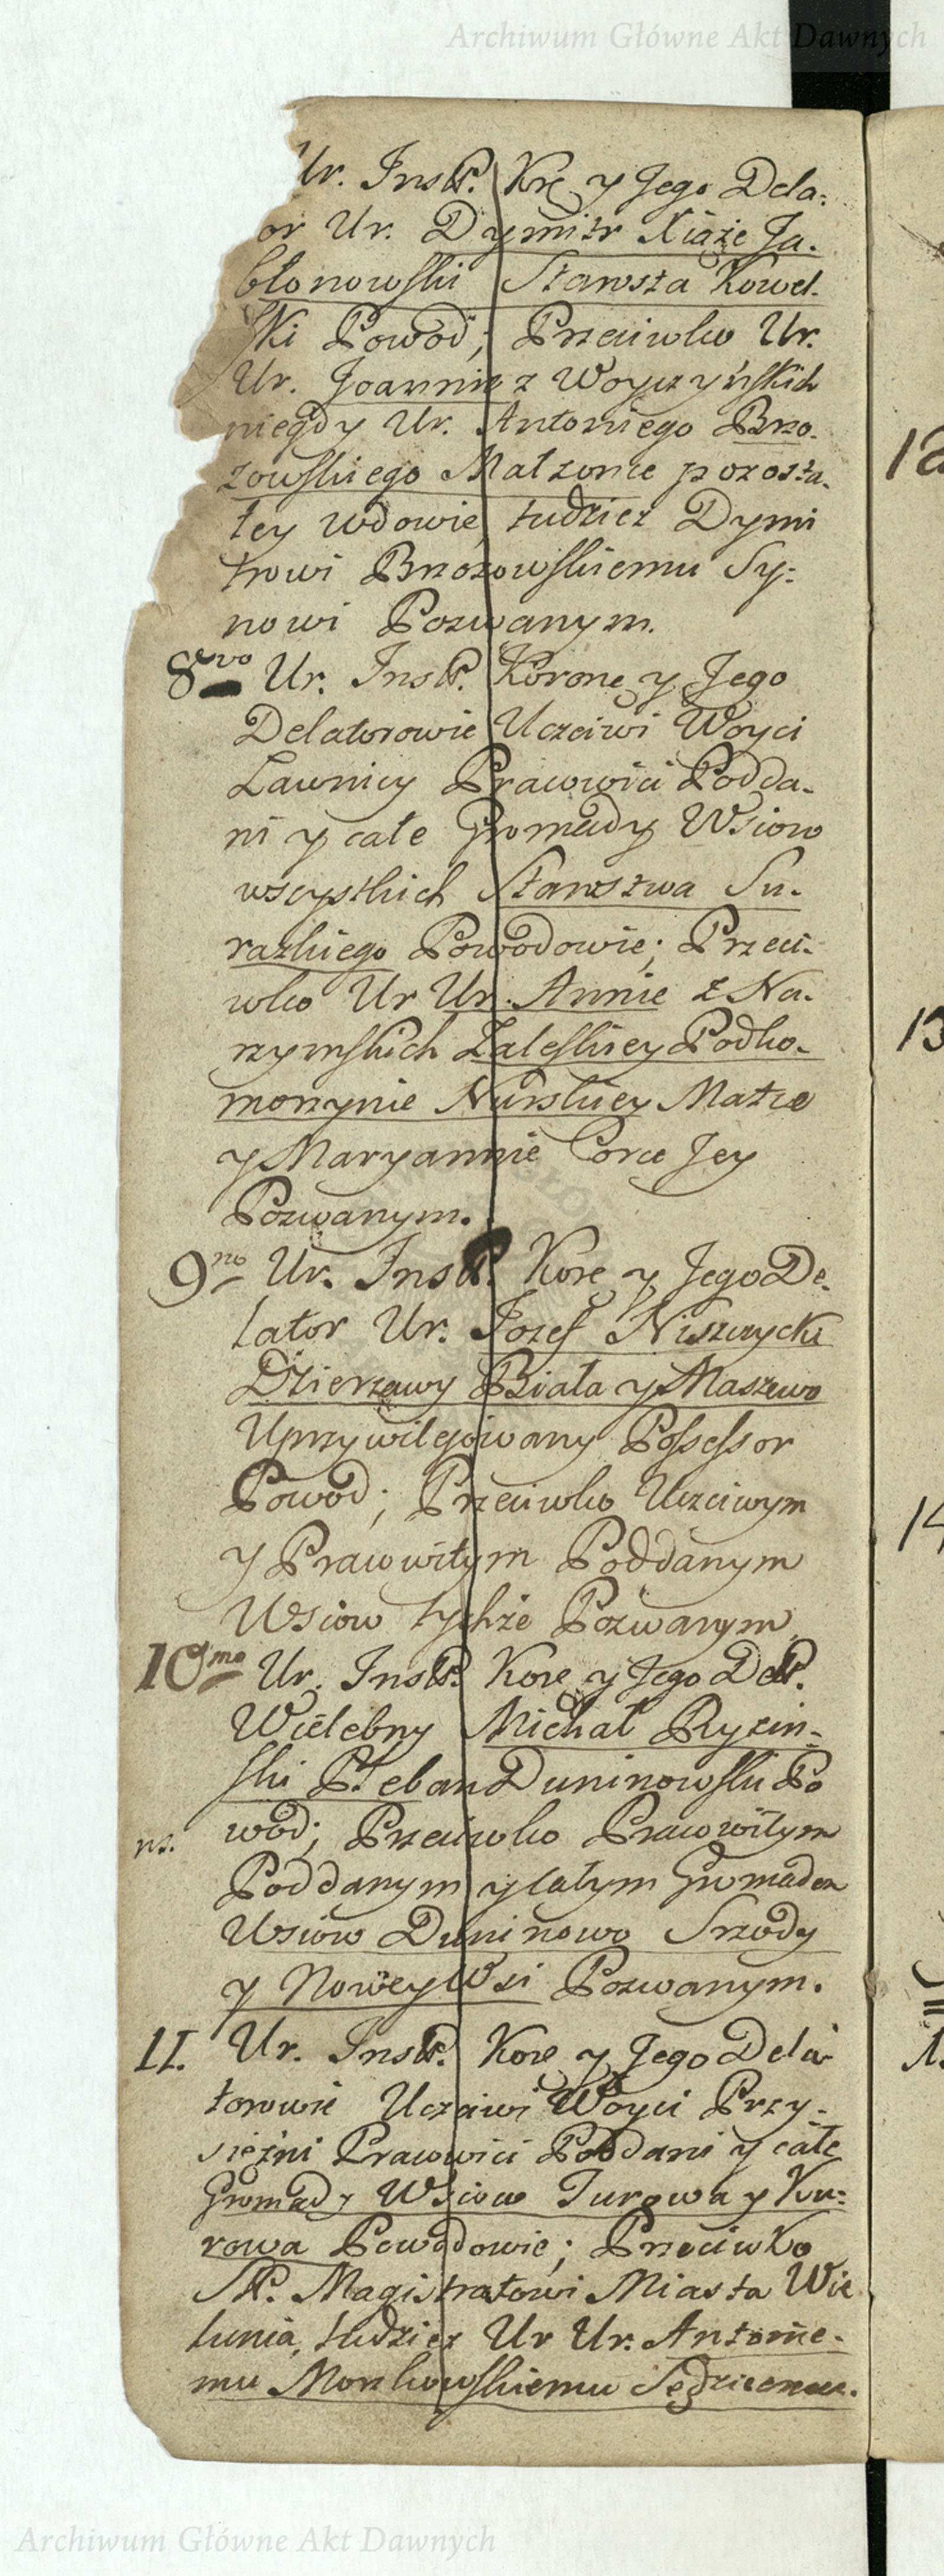 Archiwum Główne Akt Dawnych
Ur. Inst. Kre y Jego Dela:
or Ur. Dymitr Xiąże Ja-
błonowski Starosta Kowel-
ski Powod; Przeciwko Ur.
Ur. Joannie z Woyczyńskich
niegdy Ur. Antoniego Brzo-
zowskiego Małzonce pozosta-
łey wdowie, tudziez Dymi
trowi Brzozowskiemu Sy:
nowi Pozwanym.
8vo Ur. Inst. Korone y Jego
Delatorowie Uczciwi Woyci
Ławnicy Prawwici Podda-
ni y całe Gromady Wsiow
wszystkich Starostwa Su-
razkiego Powodowie; Przeci-
wko Ur Ur. Annie z Na-
rzymskich Zaleskiey Podko-
morzynie Nurskiey Matce
y Maryannie Corce Jey
Pozwanym.
9no Ur. Inst. Kore y Jego De-
lator Ur. Jozef Niszczycki
Dzierzawy Biała y Maszewo
Uprzywilejowany Possessor
Powod; Przeciwko Uczciwym
y Prawwitym Poddanym
Wsiow tychże Pozwanym.
10mo Ur. Inst. Kore y Jego Delt.
Wielebny Michał Ryzin-
ski Pleban Duninowski Po
wod; Przeciwko Prawwitym
nz. Poddanym y całym Gromadom
Wsiow Duninowo Srzody
y Nowey Wsi Pozwanym.
11. Ur. Inst. Kore y Jego Dela-
torowie Uczciwi Woyci Przy-
siężni Prawwici Poddani y całe
Gromady Wsiow Turowa y Ku:
rowa Powodowie; Przeciwko
Sł. Magistratowi Miasta Wie
lunia, tudziez Ur Ur. Antonie-
mu Morzkowskiemu Sędziemu.
12
13
14
Archiwum Główne Akt Dawnych